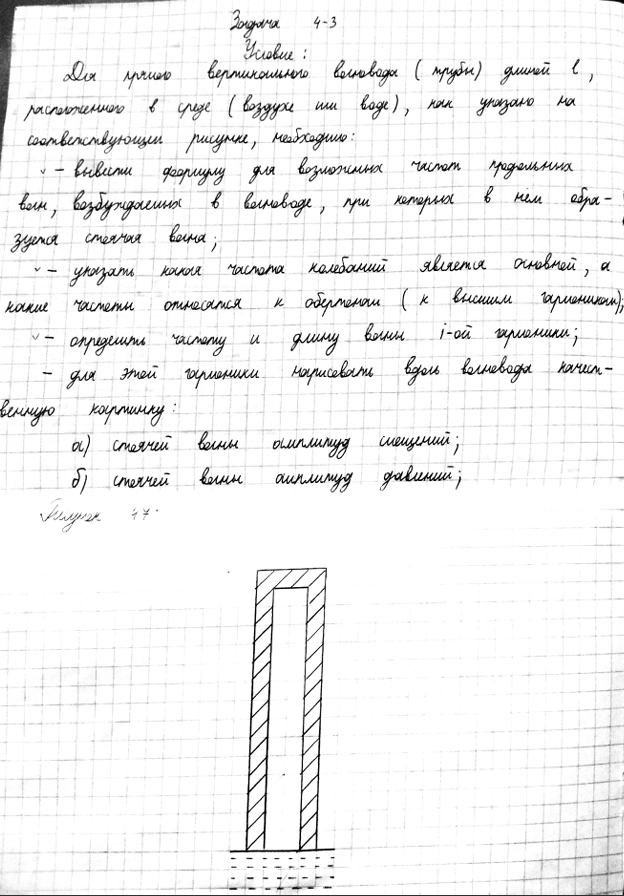 Задача 4-3
Условие:
Для прямого вертикального волновода (трубы) длиной l,
расположенного в среде (воздухе или воде), как указано на
соответствующем рисунке, необходимо:
- вывести формулу для возможных частот продольных
волн, возбуждаемых в волноводе, при которых в нем обра-
зуется стоячая волна;
- указать какая частота колебаний является основной, а
какие частоты относятся к обертонам (к высшим гармоникам);
- определить частоту и длину волны i-ой гармоники;
- для этой гармоники нарисовать вдоль волновода качест-
венную картинку:
а) стоячей волны амплитуд смещений;
б) стоячей волны амплитуд давлений;
Рисунок 47.